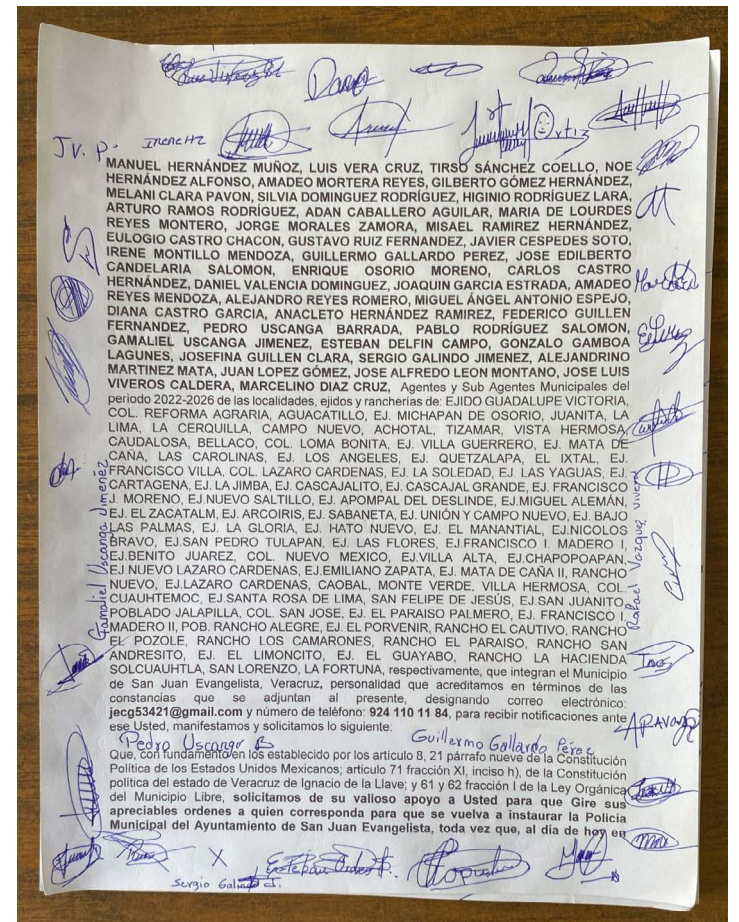 Dano
JV. P.
IRENE HZ
Ortiz
MANUEL HERNÁNDEZ MUÑOZ, LUIS VERA CRUZ, TIRSO SÁNCHEZ COELLO, NOE
HERNÁNDEZ ALFONSO, AMADEO MORTERA REYES, GILBERTO GÓMEZ HERNÁNDEZ,
MELANI CLARA PAVON, SILVIA DOMINGUEZ RODRÍGUEZ, HIGINIO RODRÍGUEZ LARA,
ARTURO RAMOS RODRÍGUEZ, ADAN CABALLERO AGUILAR, MARIA DE LOURDES
REYES MONTERO, JORGE MORALES ZAMORA, MISAEL RAMIREZ HERNÁNDEZ,
EULOGIO CASTRO CHACON, GUSTAVO RUIZ FERNANDEZ, JAVIER CESPEDES SOTO,
IRENE MONTILLO MENDOZA, GUILLERMO GALLARDO PEREZ, JOSE EDILBERTO
CANDELARIA SALOMON, ENRIQUE OSORIO MORENO, CARLOS CASTRO
HERNÁNDEZ, DANIEL VALENCIA DOMINGUEZ, JOAQUIN GARCIA ESTRADA, AMADEO
REYES MENDOZA, ALEJANDRO REYES ROMERO, MIGUEL ÁNGEL ANTONIO ESPEJO,
DIANA CASTRO GARCIA, ANACLETO HERNÁNDEZ RAMIREZ, FEDERICO GUILLEN
FERNANDEZ, PEDRO USCANGA BARRADA, PABLO RODRÍGUEZ SALOMON,
GAMALIEL USCANGA JIMENEZ, ESTEBAN DELFIN CAMPO, GONZALO GAMBOA
LAGUNES, JOSEFINA GUILLEN CLARA, SERGIO GALINDO JIMENEZ, ALEJANDRINO
MARTINEZ MATA, JUAN LOPEZ GÓMEZ, JOSE ALFREDO LEON MONTANO, JOSE LUIS
VIVEROS CALDERA, MARCELINO DIAZ CRUZ, Agentes y Sub Agentes Municipales del
periodo 2022-2026 de las localidades, ejidos y rancherías de: EJIDO GUADALUPE VICTORIA,
COL. REFORMA AGRARIA, AGUACATILLO, EJ. MICHAPAN DE OSORIO, JUANITA, LA
LIMA, LA CERQUILLA, CAMPO NUEVO, ACHOTAL, TIZAMAR, VISTA HERMOSA,
CAUDALOSA, BELLACO, COL. LOMA BONITA, EJ. VILLA GUERRERO, EJ. MATA DE
CAÑA, LAS CAROLINAS, EJ. LOS ANGELES, EJ. QUETZALAPA, EL IXTAL, EJ.
FRANCISCO VILLA, COL. LAZARO CARDENAS, EJ. LA SOLEDAD, EJ. LAS YAGUAS, EJ.
CARTAGENA, EJ. LA JIMBA, EJ. CASCAJALITO, EJ. CASCAJAL GRANDE, EJ. FRANCISCO
J. MORENO, EJ.NUEVO SALTILLO, EJ. APOMPAL DEL DESLINDE, EJ.MIGUEL ALEMÁN,
EJ. EL ZACATALM, EJ. ARCOIRIS, EJ. SABANETA, EJ. UNIÓN Y CAMPO NUEVO, EJ. BAJO
LAS PALMAS, EJ. LA GLORIA, EJ. HATO NUEVO, EJ. EL MANANTIAL, EJ.NICOLOS
BRAVO, EJ.SAN PEDRO TULAPAN, EJ. LAS FLORES, EJ.FRANCISCO I MADERO I,
EJ.BENITO JUAREZ, COL. NUEVO MEXICO, EJ.VILLA ALTA, EJ.CHAPOPOAPAN,
EJ.NUEVO LAZARO CARDENAS, EJ.EMILIANO ZAPATA, EJ. MATA DE CAÑA II, RANCHO
NUEVO, EJ.LAZARO CARDENAS, CAOBAL, MONTE VERDE, VILLA HERMOSA, COL.
CUAUHTEMOC, EJ.SANTA ROSA DE LIMA, SAN FELIPE DE JESÚS, EJ.SAN JUANITO,
POBLADO JALAPILLA, COL. SAN JOSE, EJ. EL PARAISO PALMERO, EJ. FRANCISCO I.
MADERO II, POB. RANCHO ALEGRE, EJ. EL PORVENIR, RANCHO EL CAUTIVO, RANCHO
EL POZOLE, RANCHO LOS CAMARONES, RANCHO EL PARAISO, RANCHO SAN
ANDRESITO, EJ. EL LIMONCITO, EJ. EL GUAYABO, RANCHO LA HACIENDA
SOLCUAUHTLA, SAN LORENZO, LA FORTUNA, respectivamente, que integran el Municipio
de San Juan Evangelista, Veracruz, personalidad que acreditamos en términos de las
constancias que se adjuntan al presente, designando correo electrónico:
jecg53421@gmail.com y número de teléfono: 924 110 11 84, para recibir notificaciones ante
ese Usted, manifestamos y solicitamos lo siguiente:
Pedro Uscanga B
Guillermo Gallardo Pérez
Que, con fundamento en los establecido por los artículo 8, 21 párrafo nueve de la Constitución
Política de los Estados Unidos Mexicanos; articulo 71 fracción XI, inciso h), de la Constitución
política del estado de Veracruz de Ignacio de la Llave; y 61 y 62 fracción I de la Ley Orgánica
del Municipio Libre, solicitamos de su valioso apoyo a Usted para que Gire sus
apreciables ordenes a quien corresponda para que se vuelva a instaurar la Policía
Municipal del Ayuntamiento de San Juan Evangelista, toda vez que, al día de hoy en
Gamaliel Uscanga Jiménez
Rafael Vazquez Viveros
X
Sergio Galindo J.